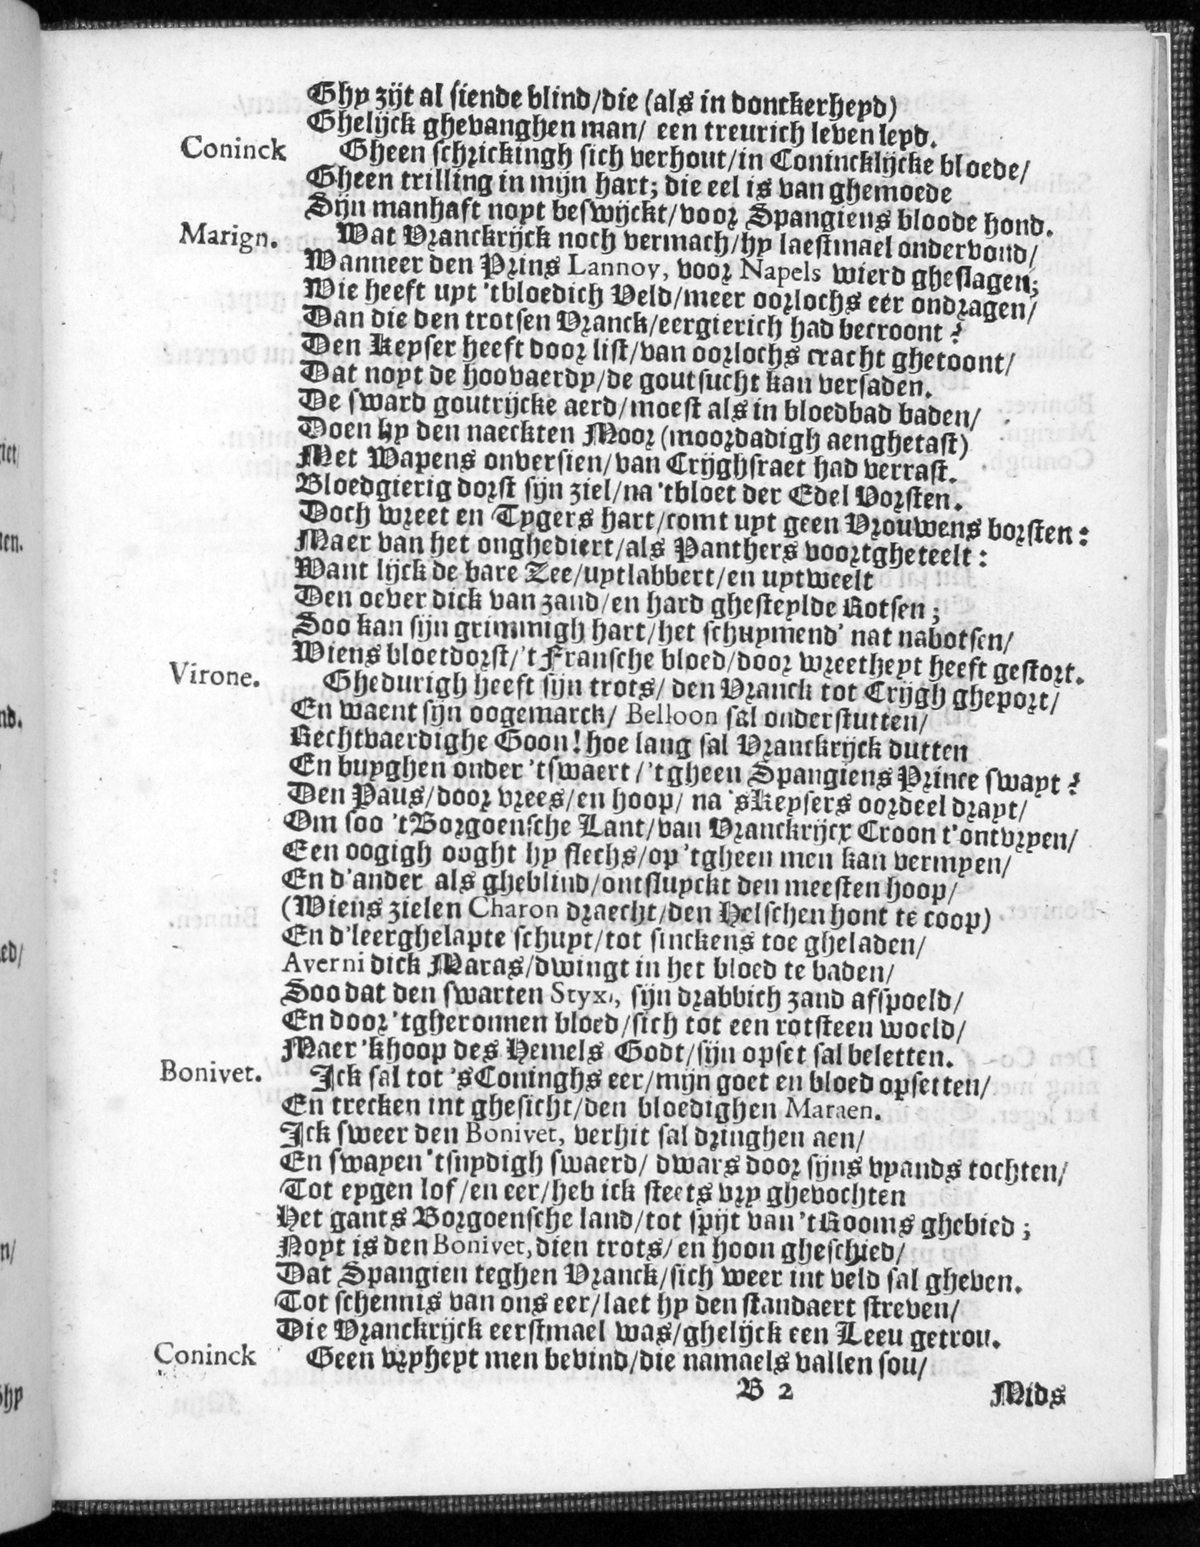 Ghy zijt al siende blind/die (als in donckerheyd)
Ghelijck ghevanghen man/ een treurich leven leyd.
Coninck Gheen schrickingh sich verhout/in Conincklijcke bloede/
Gheen trilling in mijn hart; die eel is van ghemoede
Sijn manhaft noyt beswijckt/voor Spangiens bloode hond.
Marign. Wat Vranckrijck noch vermach/hy laestmael ondervond/
Wanneer den Prins Lannoy, voor Napels wierd gheslagen;
Wie heeft uyt 'tbloedich Veld/meer oorlochs eer ondragen/
Dan die den trotsen Vranck/eergierich had becroont?
Den Keyser heeft door list/van oorlochs cracht ghetoont/
Dat noyt de hoovaerdy/de goutsucht kan versaden.
De sward goutrijcke aerd/moest als in bloedbad baden/
Doen hy den naeckten Moor (moordadigh aenghetast)
Met Wapens onversien/van Crijghsraet had verrast.
Bloedgierig dorst sijn ziel/na 'tbloet der Edel Vorsten.
Doch wreet en Tygers hart/comt uyt geen Vrouwens borsten:
Maer van het onghediert/als Panthers voortgheteelt:
Want lijck de bare Zee/uytlabbert/en uytweelt
Den oever dick van zand/en hard ghesteylde Rotsen;
Soo kan sijn grimmigh hart/het schuymend' nat nabotsen/
Wiens bloetdorst/'t Fransche bloed/door wreetheyt heeft gestort.
Virone. Ghedurigh heeft sijn trots/ den Vranck tot Crijgh gheport/
En waent sijn oogemarck/ Belloon sal onderstutten/
Rechtvaerdighe Goon! hoe lang sal Vranckrijck dutten
En buyghen onder 'tswaert/'tgheen Spangiens Prince swayt?
Den Paus/door vrees/en hoop/ na 'sKeysers oordeel drayt/
Om soo 't Borgoensche Lant/van Vranckrijcx Croon t'ontvryen/
Een oogigh ooght hy slechs/op 'tgheen men kan vermyen/
En d'ander als gheblind/ontsluyckt den meesten hoop/
(Wiens zielen Charon draecht/den Helschen hont te coop)
En d'leerghelapte schuyt/tot sinckens toe gheladen/
Averni dick Maras/dwingt in het bloed te baden/
Soo dat den swarten Styx, sijn drabbich zand afspoeld/
En door 'tgheronnen bloed/sich tot een rotsteen woeld/
Maer 'khoop des Hemels Godt/sijn opset sal beletten.
Bonivet. Ick sal tot 'sConinghs eer/mijn goet en bloed opsetten/
En trecken int ghesicht/den bloedighen Maraen.
Ick sweer den Bonivet, verhit sal dringhen aen/
En swayen 'tsnydigh swaerd/ dwars door sijns vyands tochten/
Tot eygen lof/en eer/heb ick steets vry ghevochten
Het gants Borgoensche land/tot spijt van 't Rooms ghebied;
Noyt is den Bonivet, dien trots/en hoon gheschied/
Dat Spangien teghen Vranck/sich weer int veld sal gheven.
Tot schennis van ons eer/laet hy den standaert streven/
Die Vranckrijck eerstmael was/ghelijck een Leeu getrou.
Coninck Geen vryheyt men bevind/die namaels vallen sou/
B 2 Mids